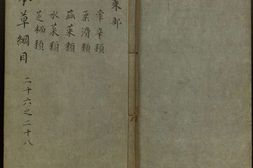 菜部
葷辛類
柔滑類
蓏菜類
水菜類
芝栭類
本草綱目 二十六之二十八